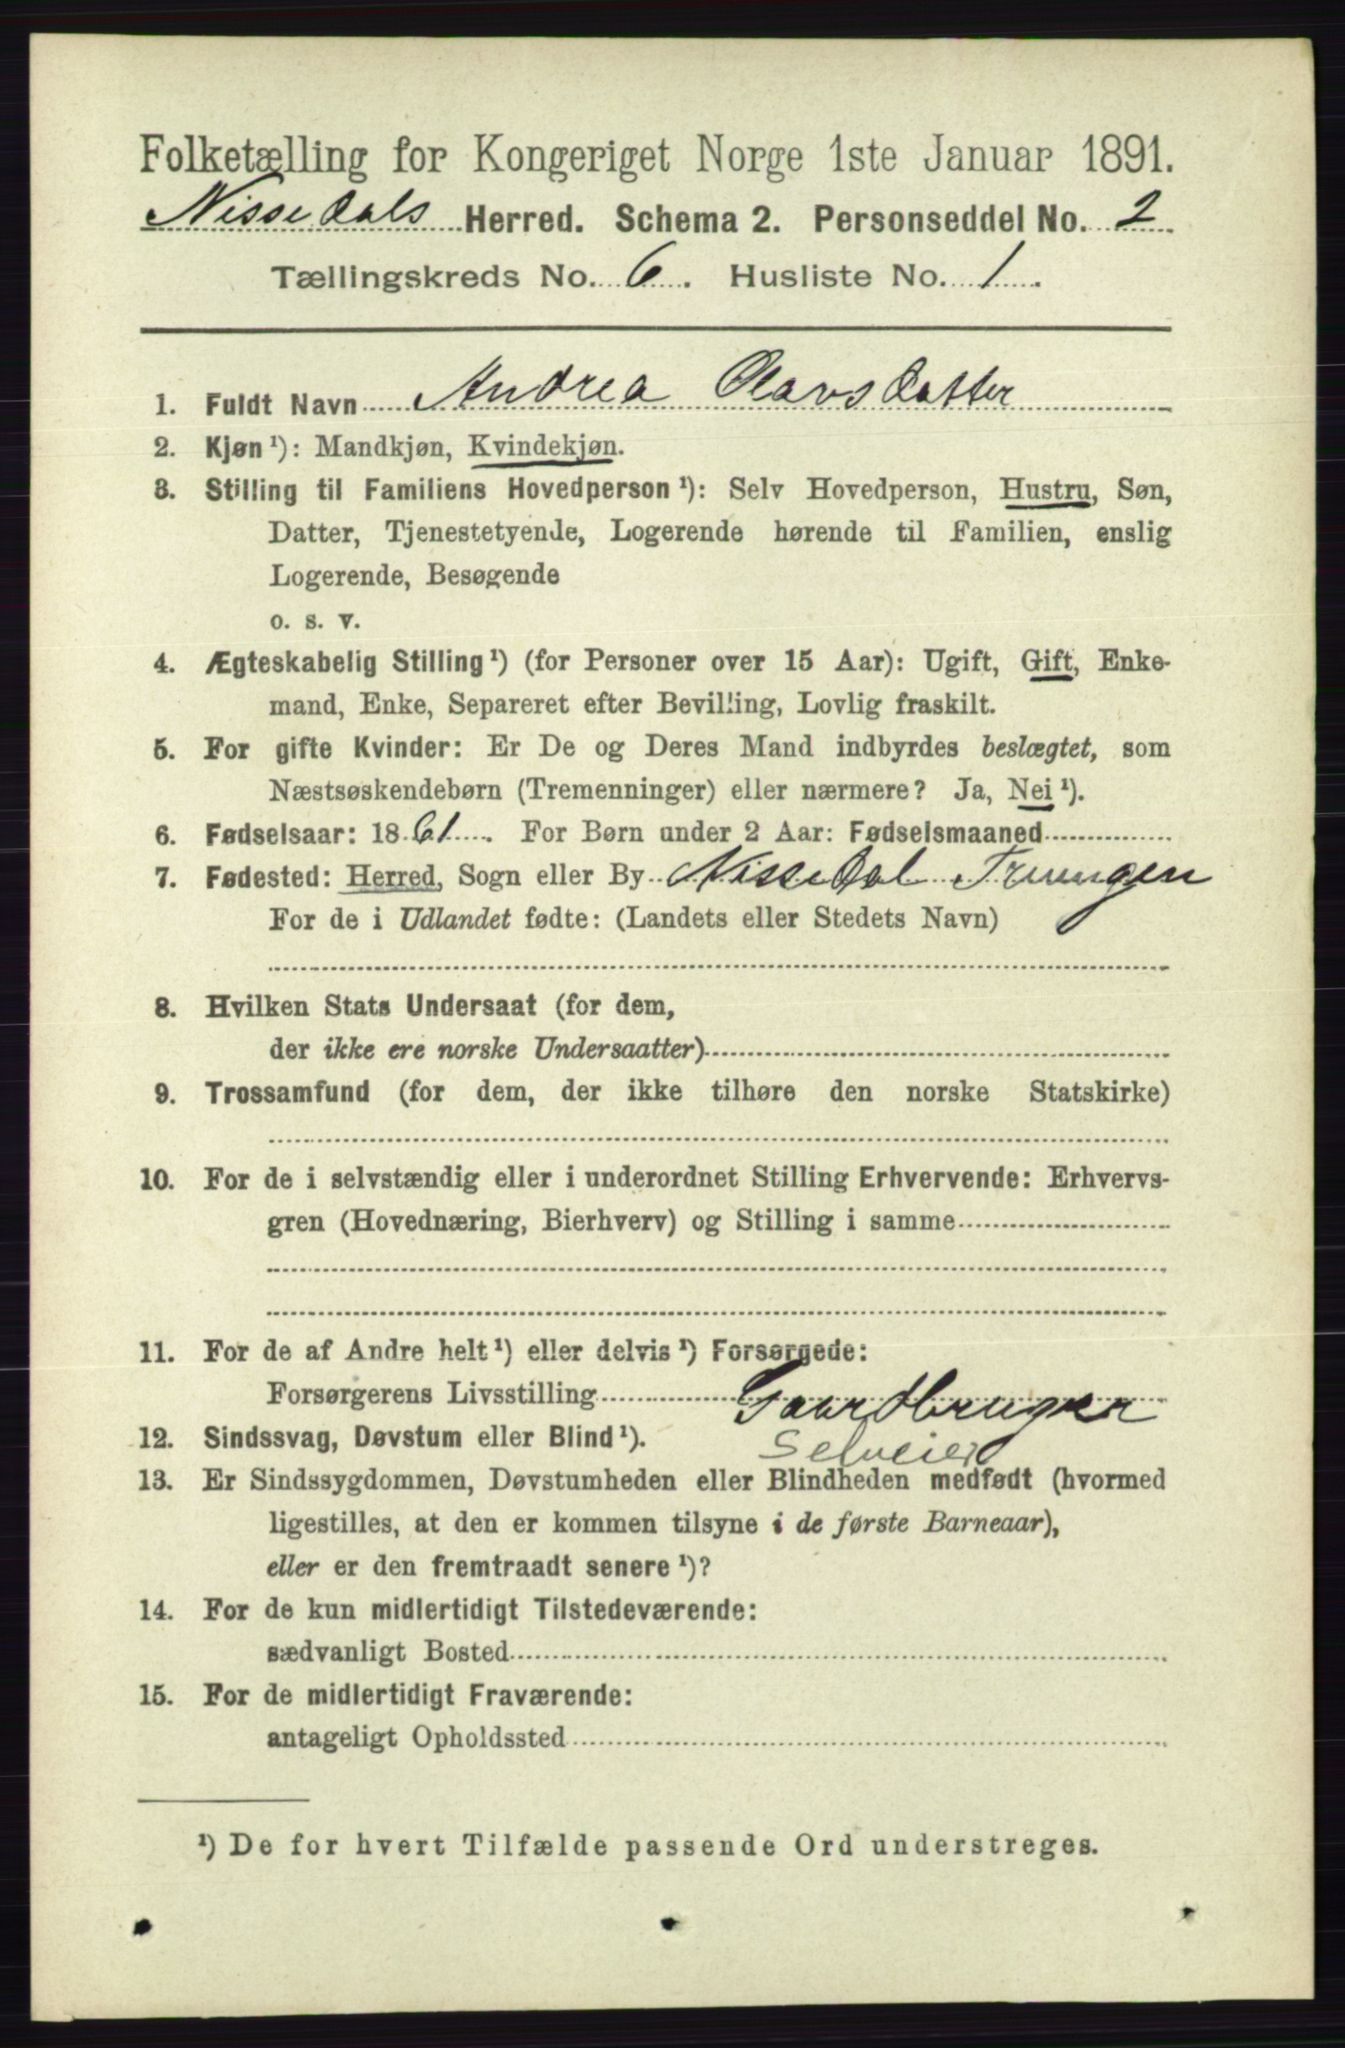 Folketælling for Kongeriget Norge 1ste Januar 1891.
Nissedals Herred. Schema 2. Personseddel No. 2
Tællingskreds No. 6. Husliste No. 1.
1. Fuldt Navn Andrea Olavsdatter
2. Kjøn ¹): Mandkjøn, Kvindekjøn.
3. Stilling til Familiens Hovedperson ¹): Selv Hovedperson, Hustru, Søn,
Datter, Tjenestetyende, Logerende hørende til Familien, enslig
Logerende, Besøgende
o. s. v.
4. Ægteskabelig Stilling ¹) (for Personer over 15 Aar): Ugift, Gift, Enke-
mand, Enke, Separeret efter Bevilling, Lovlig fraskilt.
5. For gifte Kvinder: Er De og Deres Mand indbyrdes beslægtet, som
Næstsøskendebørn (Tremenninger) eller nærmere? Ja, Nei ¹).
6. Fødselsaar: 1861. For Børn under 2 Aar: Fødselsmaaned
7. Fødested: Herred, Sogn eller By Nissedal Treungen
For de i Udlandet fødte: (Landets eller Stedets Navn)
8. Hvilken Stats Undersaat (for dem,
der ikke ere norske Undersaatter)
9. Trossamfund (for dem, der ikke tilhøre den norske Statskirke)
10. For de i selvstændig eller i underordnet Stilling Erhvervende: Erhvervs-
gren (Hovednæring, Bierhverv) og Stilling i samme
11. For de af Andre helt ¹) eller delvis ¹) Forsørgede:
Forsørgerens Livsstilling Gaardbruger
Selveier
12. Sindssvag, Døvstum eller Blind ¹).
13. Er Sindssygdommen, Døvstumheden eller Blindheden medfødt (hvormed
ligestilles, at den er kommen tilsyne i de første Barneaar),
eller er den fremtraadt senere ¹)?
14. For de kun midlertidigt Tilstedeværende:
sædvanligt Bosted
15. For de midlertidigt Fraværende:
antageligt Opholdssted
¹) De for hvert Tilfælde passende Ord understreges.